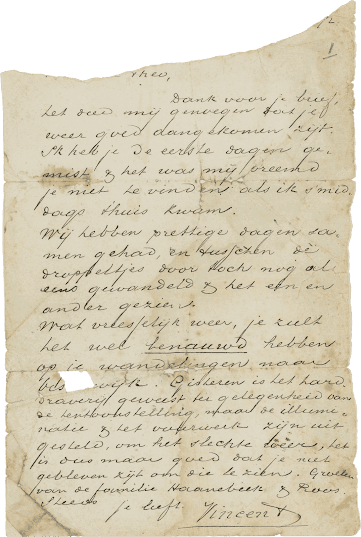 1
Theo,
Dank voor je brief,
het deed mij genoegen dat je
weer goed aangekomen zijt.
Ik heb je de eerste dagen ge-
mist & het was mij vreemd
je niet te vinden als ik smid-
dags thuis kwam.
Wij hebben prettige dagen sa-
men gehad, en tusschen de
droppeltjes door toch nog al
eens gewandeld & het een en
ander gezien.
Wat vreesselijk weer, je zult
het wel benauwd hebben
op je wandelingen naar
wijk. Gisteren is het hard-
draverij geweest ter gelegenheid van
de tentoonstelling, maar de illumi-
natie & het vuurwerk zijn uit
gesteld, om het slechte weer, het
is dus maar goed dat je niet
gebleven zijt om die te zien. Groeten
van de familie Haanebeek & Roos.
Steeds
je liefh. Vincent